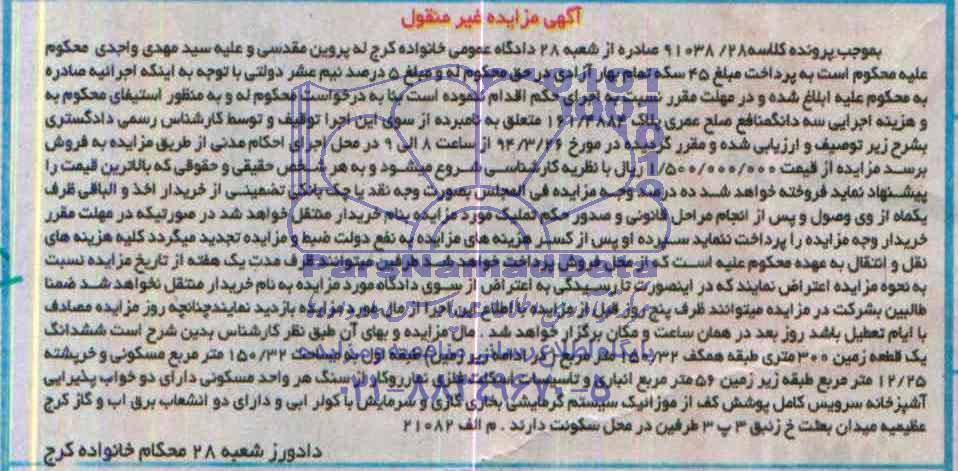 آگهی مزایده غیر منقول
بموجب پرونده کلاسه ۲۸/ ۹۱۰۳۸ صادره از شعبه ۲۸ دادگاه عمومی خانواده کرج له پروین مقدسی و علیه سید مهدی واحدی محکوم
علیه محکوم است به پرداخت مبلغ ۴۵ سکه تمام بهار آزادی در حق محکوم له و مبلغ ۵ درصد نیم عشر دولتی با توجه به اینکه اجرائیه صادره
به محکوم علیه ابلاغ شده و در مهلت مقرر نسبت به اجرای حکم اقدام ننموده است بنا به درخواست محکوم له و به منظور استیفای محکوم به
و هزینه اجرایی سه دانگ منافع صلح عمری پلاک ۱۶۲/۳۸۸۴ متعلق به نامبرده از سوی این اجرا توقیف و توسط کارشناس رسمی دادگستری
بشرح زیر توصیف و ارزیابی شده و مقرر گردیده در مورخ ۹۴/۳/۲۶ از ساعت ۸ الی ۹ در محل اجرای احکام مدنی از طریق مزایده به فروش
برسد مزایده از قیمت ۱/۵۰۰/۰۰۰/۰۰۰ ریال با نظریه کارشناسی شروع میشود و به هر شخص حقیقی و حقوقی که بالاترین قیمت را
پیشنهاد نماید فروخته خواهد شد ده درصد وجه مزایده فی المجلس بصورت وجه نقد یا چک بانکی تضمینی از خریدار اخذ و الباقی ظرف
یکماه از وی وصول و پس از انجام مراحل قانونی و صدور حکم تملیک مورد مزایده بنام خریدار منتقل خواهد شد در صورتیکه در مهلت مقرر
خریدار وجه مزایده را پرداخت ننماید سپرده او پس از کسر هزینه های مزایده به نفع دولت ضبط و مزایده تجدید میگردد کلیه هزینه های
نقل و انتقال به عهده محکوم علیه است که از محل فروش پرداخت خواهد شد طرفین میتوانند ظرف مدت یک هفته از تاریخ مزایده نسبت
به نحوه مزایده اعتراض نمایند که در اینصورت تا رسیدگی به اعتراض از سوی دادگاه مورد مزایده به نام خریدار منتقل نخواهد شد ضمنا
طالبین بشرکت در مزایده میتوانند ظرف پنج روز قبل از مزایده با اطلاع این اجرا از مال مورد مزایده بازدید نمایند چنانچه روز مزایده مصادف
با ایام تعطیل باشد روز بعد در همان ساعت و مکان برگزار خواهد شد . مال مزایده و بهای آن طبق نظر کارشناس بدین شرح است ششدانگ
یک قطعه زمین ۳۰۰ متری طبقه همکف ۱۵۰/۳۲ متر مربع طبقه اول بوسعت ۱۵۰/۳۲ متر مربع مسکونی و خرپشته
۱۲/۲۵ متر مربع طبقه زیر زمین ۵۶ متر مربع انباری و تاسیسات اسکلت فلزی نما روکار از سنگ هر واحد مسکونی دارای دو خواب پذیرایی
آشپزخانه سرویس کامل پوشش کف از موزائیک سیستم گرمایشی بخاری گازی و سرمایش با کولر ابی و دارای دو انشعاب برق اب و گاز کرج
عظیمیه میدان بعثت خ زنبق ۳ پ ۳ طرفین در محل سکونت دارند . م الف ۲۱۰۸۲
دادورز شعبه ۲۸ محکام خانواده کرج
ParsNamadData
پایگاه اطلاع رسانی مناقصه و مزایده